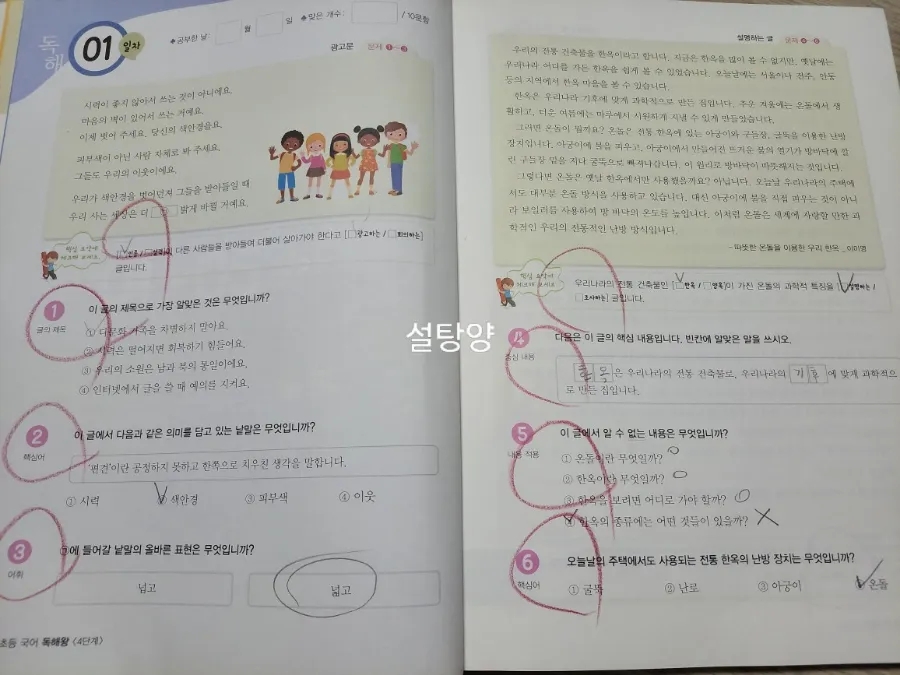 독해
01 일차
공부한 날 월 일 맞은 개수: / 10문항
광고문 문제 1~3
시력이 좋지 않아서 쓰는 것이 아니에요.
마음의 벽이 있어서 쓰는 거예요.
이제 벗어 주세요. 당신의 색안경을요.
피부색이 아닌 사람 자체로 봐 주세요.
그들도 우리의 이웃이에요.
우리가 색안경을 벗어던져 그들을 받아들일 때
우리 사는 세상은 더 밝게 바뀔 거예요.
다른 사람들을 받아들여 더불어 살아가야 한다고 [□광고하는 / □회의하는]
글입니다.
1 이 글의 제목으로 가장 알맞은 것은 무엇입니까?
글의 제목
① 다문화 가족을 차별하지 말아요.
② 시력은 떨어지면 회복하기 힘들어요.
③ 우리의 소원은 남과 북의 통일이에요.
④ 인터넷에서 글을 쓸 때 예의를 지켜요.
2 이 글에서 다음과 같은 의미를 담고 있는 낱말은 무엇입니까?
핵심어
'편견'이란 공정하지 못하고 한쪽으로 치우친 생각을 말합니다.
① 시력 색안경 ③ 피부색 ④ 이웃
3 ㉠에 들어갈 낱말의 올바른 표현은 무엇입니까?
어휘
넙고 넓고
초등 국어 독해왕 <4단계>
설명하는 글 문제 4~6
우리의 전통 건축물을 한옥이라고 합니다. 지금은 한옥을 많이 볼 수 없지만, 옛날에는
우리나라 어디를 가든 한옥을 쉽게 볼 수 있었습니다. 오늘날에는 서울이나 전주, 안동
등의 지역에서 한옥 마을을 볼 수 있습니다.
한옥은 우리나라 기후에 맞게 과학적으로 만든 집입니다. 추운 겨울에는 온돌에서 생
활하고, 더운 여름에는 마루에서 시원하게 지낼 수 있게 만들었습니다.
그러면 온돌이 뭘까요? 온돌은 전통 한옥에 있는 아궁이와 구들장, 굴뚝을 이용한 난방
장치입니다. 아궁이에 불을 피우고, 아궁이에서 만들어진 뜨거운 불의 열기가 방바닥에 깔
린 구들장 밑을 지나 굴뚝으로 빠져나갑니다. 이 원리로 방바닥이 따뜻해지는 것입니다.
그렇다면 온돌은 옛날 한옥에서만 사용했을까요? 아닙니다. 오늘날 우리나라의 주택에
서도 대부분 온돌 방식을 사용하고 있습니다. 대신 아궁이에 불을 직접 피우는 것이 아니
라 보일러를 사용하여 방 바닥의 온도를 높입니다. 이처럼 온돌은 세계에 자랑할 만한 과
학적인 우리의 전통적인 난방 방식입니다.
- 따뜻한 온돌을 이용한 우리 한옥, 이미영
우리나라의 전통 건축물인 [□한옥 / □양옥]이 가진 온돌의 과학적 특징을 [□설명하는 /
□조사하는] 글입니다.
4 다음은 이 글의 핵심 내용입니다. 빈칸에 알맞은 말을 쓰시오.
중심 내용
한옥은 우리나라의 전통 건축물로, 우리나라의 기후에 맞게 과학적으
로 만든 집입니다.
5 이 글에서 알 수 없는 내용은 무엇입니까?
내용 적용
① 온돌이란 무엇일까? ○
② 한옥이란 무엇일까? ○
③ 한옥을 보려면 어디로 가야 할까? ○
한옥의 종류에는 어떤 것들이 있을까? ×
6 오늘날의 주택에서도 사용되는 전통 한옥의 난방 장치는 무엇입니까?
핵심어
① 굴뚝 ② 난로 ③ 아궁이 온돌
설탕양